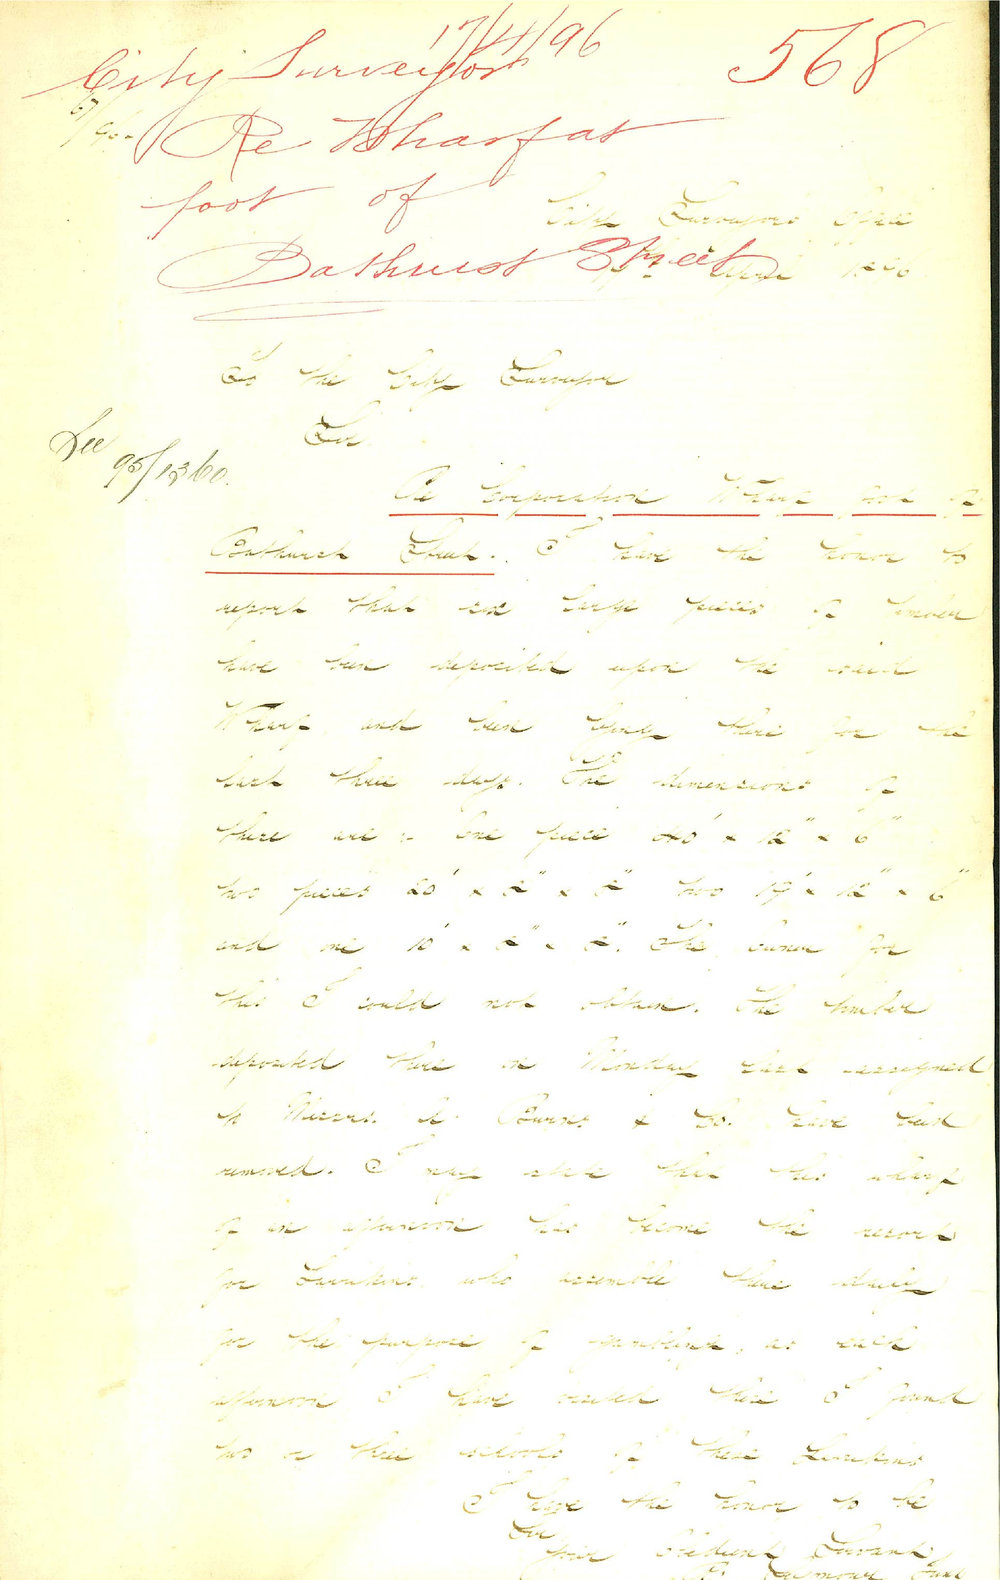 17/4/96
City Surveyor 568
Re Wharf at
foot of
Bathurst Street
City Surveyors
April 1896
To the City Surveyor
Sir
See
95/1360.
Re Corporation Wharf foot of
Bathurst Street. I have the honor to
report that six large pieces of timber
have been deposited upon the said
Wharf and been lying there for the
last three days. The dimensions of
these are - One piece 40' x 12" x 6"
two pieces 20' x 2" x 2" two 19' x 12" x 6"
and one 10' x 2" x 2". The owner for
this I could not obtain. The timber
deposited there on Monday last assigned
to Messrs. Burns & Co. have been
removed. I may state that this wharf
of an afternoon has become the resort
for Larrikins who assemble there daily
for the purpose of gambling, as each
afternoon I have visited there I found
two or three schools of these Larrikins
I have the honor to be
Sir
your obedient Servant